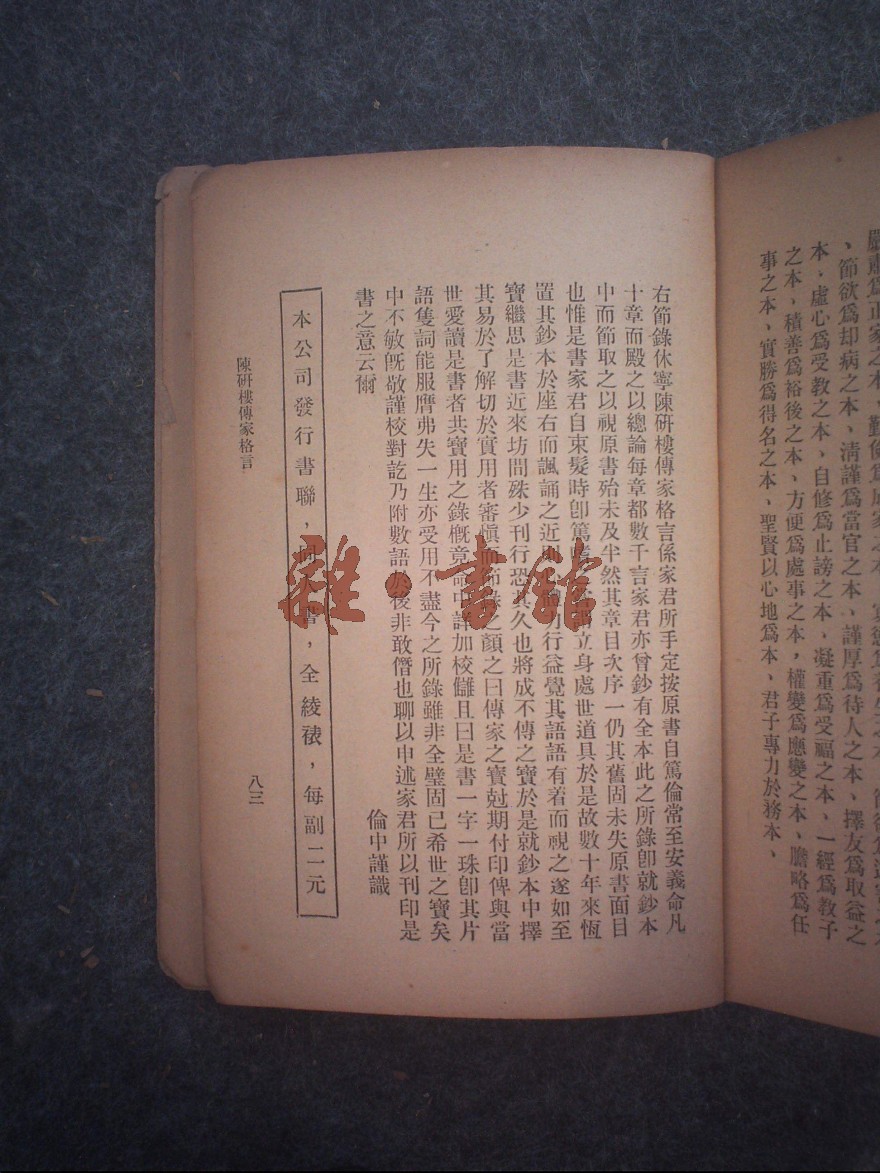 嚴肅爲正家之本、勤儉爲
、節欲爲却病之本、淸謹爲當官之本、謹厚爲待人之本、擇友爲取益之
本、虛心爲受教之本、自修爲止謗之本、凝重爲受福之本、一經爲教子
之本、積善爲裕後之本、方便爲處事之本，權變爲應變之本、膽略爲任
事之本、實勝爲得名之本、聖賢以心地爲本、君子專力於務本、
右節錄休寧陳硏樓傳家格言係家君所手定按原書自篤倫常至安義命凡
十章而殿之以總論每章都數千言家君亦曾鈔有全本此之所錄卽就鈔本
中而節取之以視原書殆未及半然其章目次序一仍其舊固未失原書面目
也惟是書家君自束髮時卽篤嗜立身處世道具於是故數十年來恆
置其鈔本於座右而諷誦之近行益覺其語語有着而視之遂如至
寶繼思是書近來坊間殊少刊行恐其久也將成不傳之寶於是就鈔本中擇
其易於了解切於實用者審愼而節錄之顏之曰傳家之寶尅期付印俾與當
世愛讀是書者共寶用之錄槪竟命中詳加校讎且曰是書一字一珠卽其片
語隻詞能服膺弗失一生亦受用不盡今之所錄雖非全璧固已希世之寶矣
中不敏旣敬謹校對訖乃附數語於後非敢僭也聊以申述家君所以刊印是
書之意云爾
倫中謹識
本公司發行書聯，書，全綾裱，每副二元
陳硏樓傳家格言
八三
雜·書館